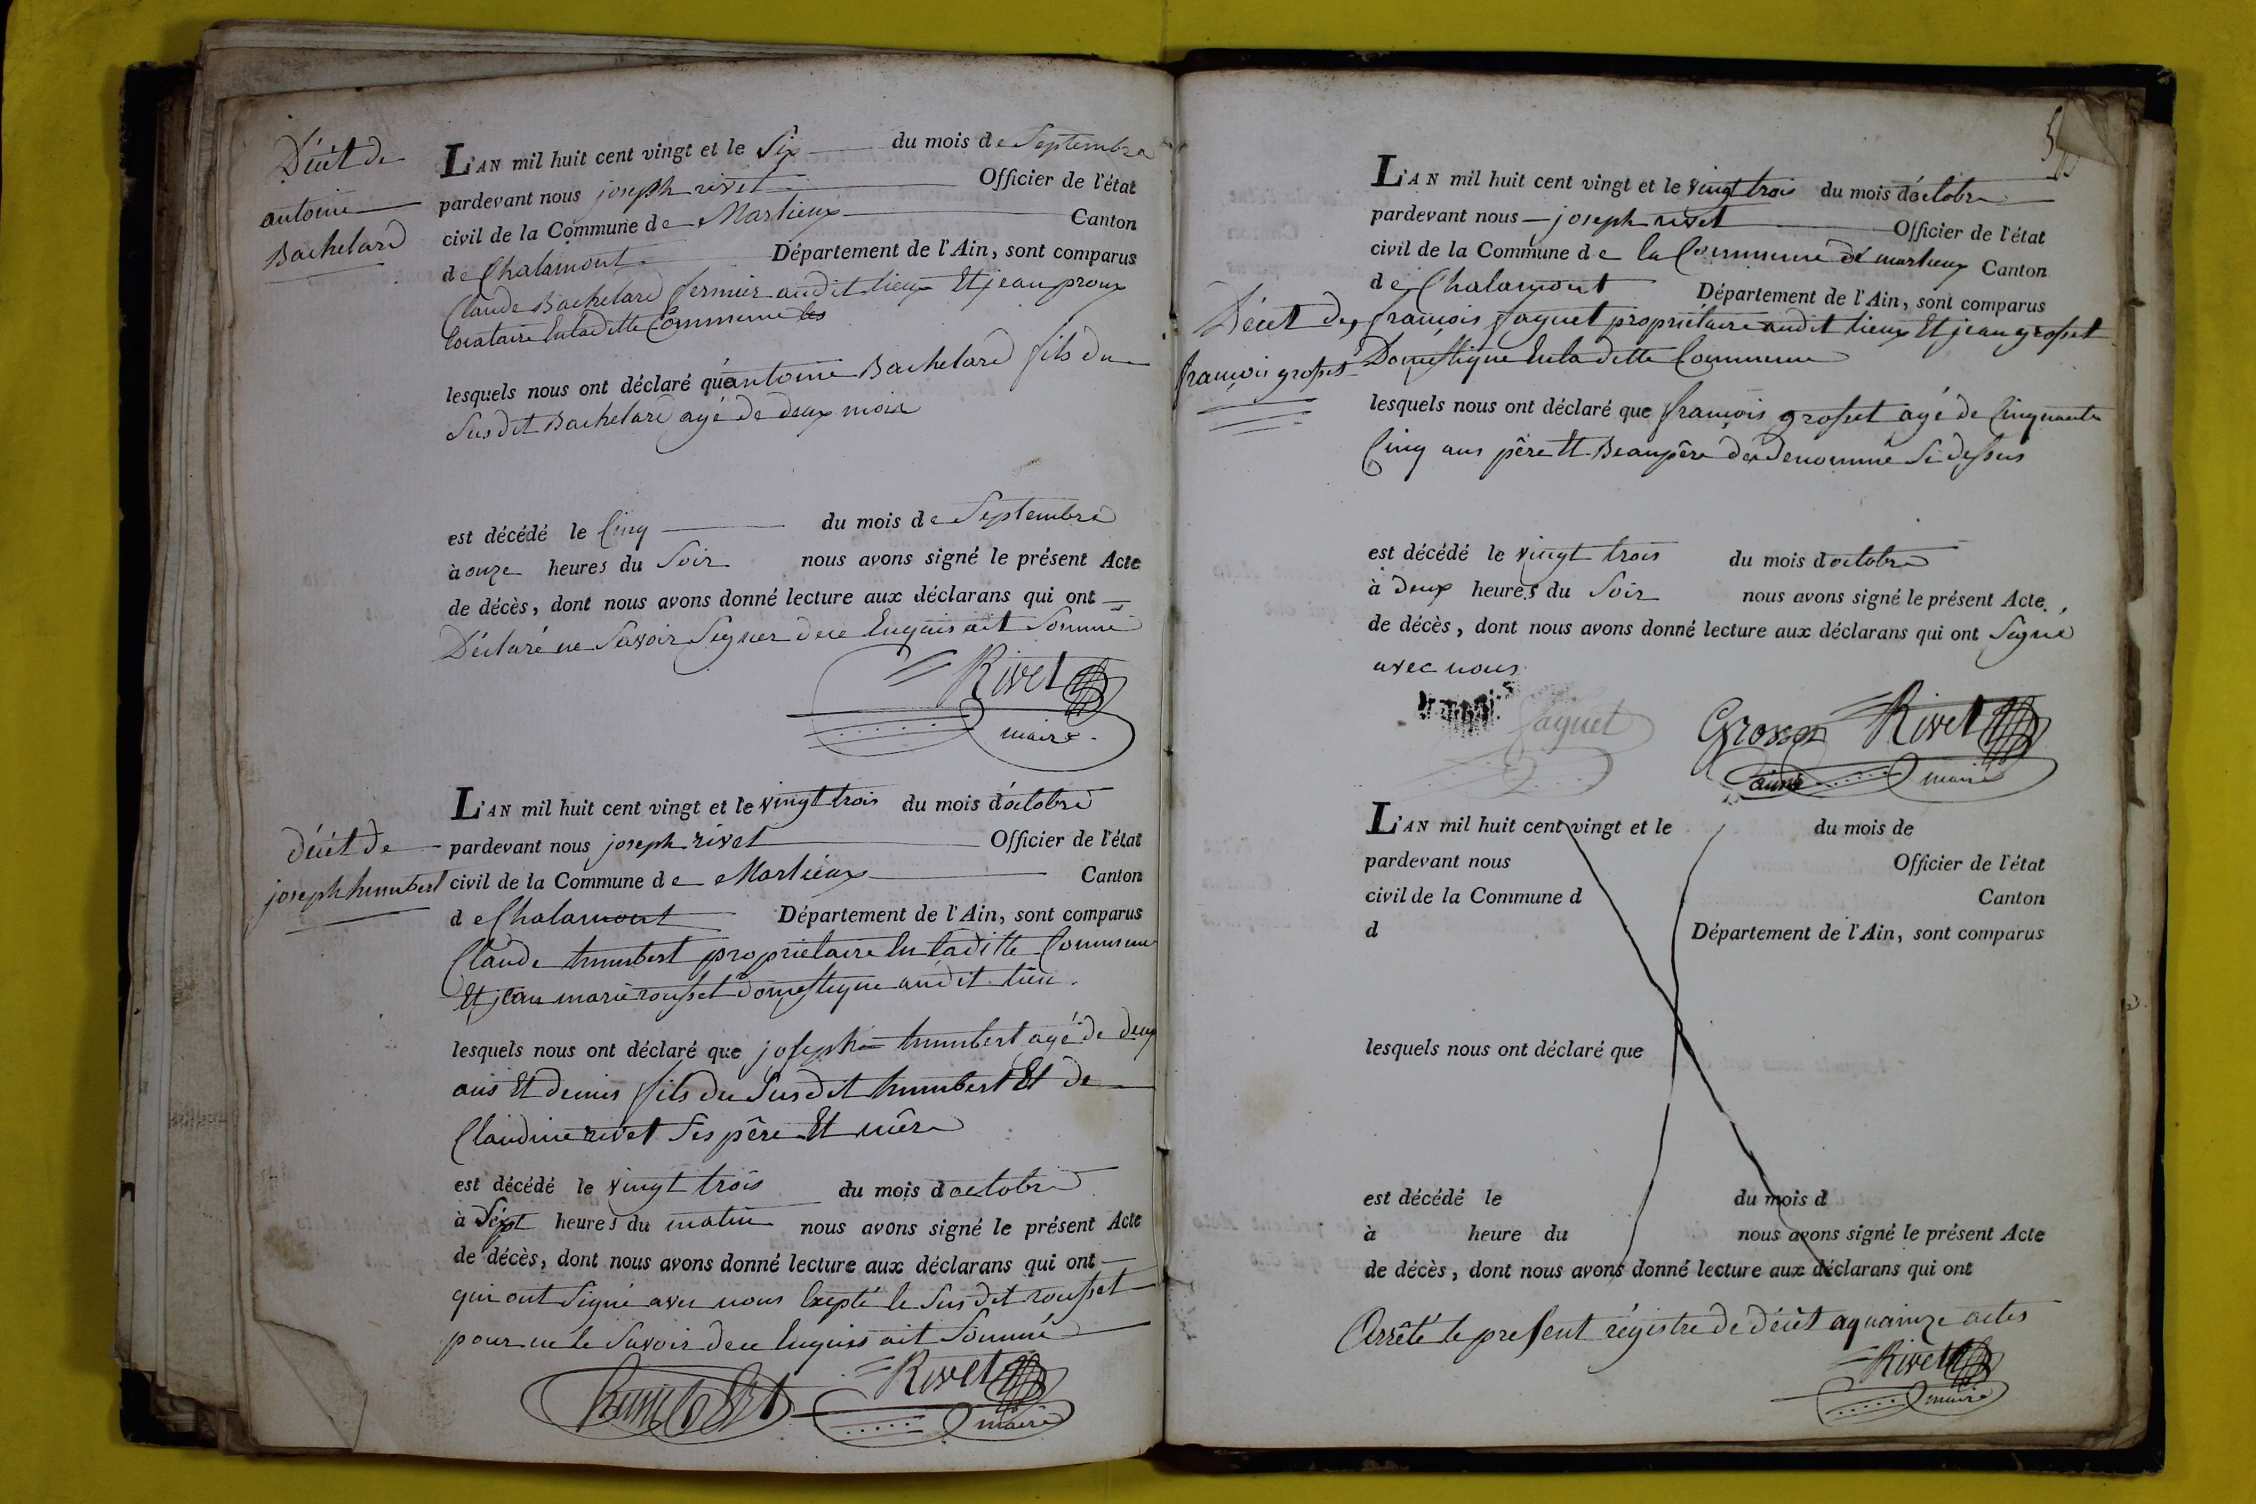 Décét de
antoine
Bachelard
L'AN mil huit cent vingt et le Six du mois de Septembre
pardevant nous joseph rivet Officier de l'état
civil de la Commune de Marlieux Canton
de Chalamont Département de l'Ain, sont comparus
Claude Bachelard fermier audit lieux Et jean proux
locataire Enladitte Commune les
lesquels nous ont déclaré que antoine Bachelard fils du
Susdit Bachelard agé de deux mois
est décédé le Cinq du mois de Septembre
à onze heures du Soir nous avons signé le présent Acte
de décès, dont nous avons donné lecture aux déclarans qui ont
Déclaré ne Savoir Signer dece Enquis ait Sommé
Rivet
maire
décét de
joseph humbert
L'AN mil huit cent vingt et le vingt trois du mois d'octobre
pardevant nous joseph rivet Officier de l'état
civil de la Commune de Marlieux Canton
de Chalamont Département de l'Ain, sont comparus
Claude humbert propriétaire En laditte Commune
Et jean marie rousset domestique audit lieu.
lesquels nous ont déclaré que joseph humbert agé de deux
ans Et demis fils du Susdit humbert Et de
Claudine rivet Ses père Et mère
est décédé le vingt trois du mois doctobre
à Sept heures du matin nous avons signé le présent Acte
de décès, dont nous avons donné lecture aux déclarans qui ont
qui ont Signé avec nous Exepté le Susdit rousset
pour ne le Savoir dece Enquiss ait Sommé
humbert Rivet
maire
Décét de
françois grosset
L'AN mil huit cent vingt et le vingt trois du mois d'octobre
pardevant nous joseph rivet Officier de l'état
civil de la Commune de la Commune de marlieux Canton
de Chalamont Département de l'Ain, sont comparus
françois Jaquet propriétaire audit lieux Et jean grosset
Domestique Enla ditte Commune
lesquels nous ont déclaré que françois grosset agé de Cinquante
Cinq ans père Et Beaupère des denommé Si dessus
est décédé le vingt trois du mois doctobre
à deux heures du Soir nous avons signé le présent Acte
de décès, dont nous avons donné lecture aux déclarans qui ont Signé
avec nous
Jaquet Grosset Rivet
ainé maire
L'AN mil huit cent vingt et le du mois de
pardevant nous Officier de l'état
civil de la Commune d Canton
d Département de l'Ain, sont comparus
lesquels nous ont déclaré que
est décédé le du mois d
à heure du nous avons signé le présent Acte
de décès, dont nous avons donné lecture aux déclarans qui ont
Arrêté le present régistre de décét aquainze actes
Rivet
maire